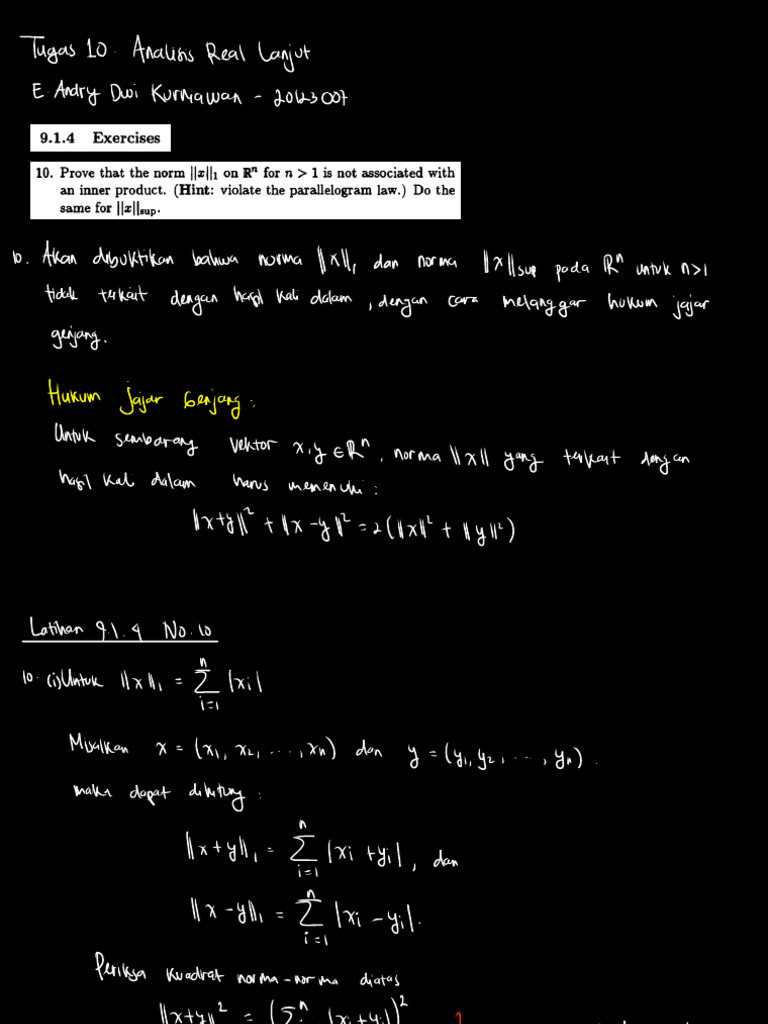 Tugas 10. Analisis Real Lanjut
E. Andry Dwi Kurniawan - 20123007
9.1.4 Exercises
10. Prove that the norm ||x||₁ on Rⁿ for n > 1 is not associated with
an inner product. (Hint: violate the parallelogram law.) Do the
same for ||x||sup.
10. Akan dibuktikan bahwa norma ||x||₁ dan norma ||x||sup pada ℝⁿ untuk n>1
tidak terkait dengan hasil kali dalam, dengan cara melanggar hukum jajar
genjang.
Hukum Jajar Genjang:
Untuk sembarang vektor x, y ∈ ℝⁿ, norma ||x|| yang terkait dengan
hasil kali dalam harus memenuhi:
||x+y||² + ||x-y||² = 2(||x||² + ||y||²)
Latihan 9.1.4 No.10
10. (i) Untuk ||x||₁ = Σⁿᵢ₌₁ |xᵢ|
Misalkan x = (x₁, x₂, ..., xₙ) dan y = (y₁, y₂, ..., yₙ).
maka dapat dihitung:
||x+y||₁ = Σⁿᵢ₌₁ |xᵢ + yᵢ|, dan
||x-y||₁ = Σⁿᵢ₌₁ |xᵢ - yᵢ|.
Periksa kuadrat norma-norma diatas
||x+y||² = (Σⁿ |xᵢ+yᵢ|)²